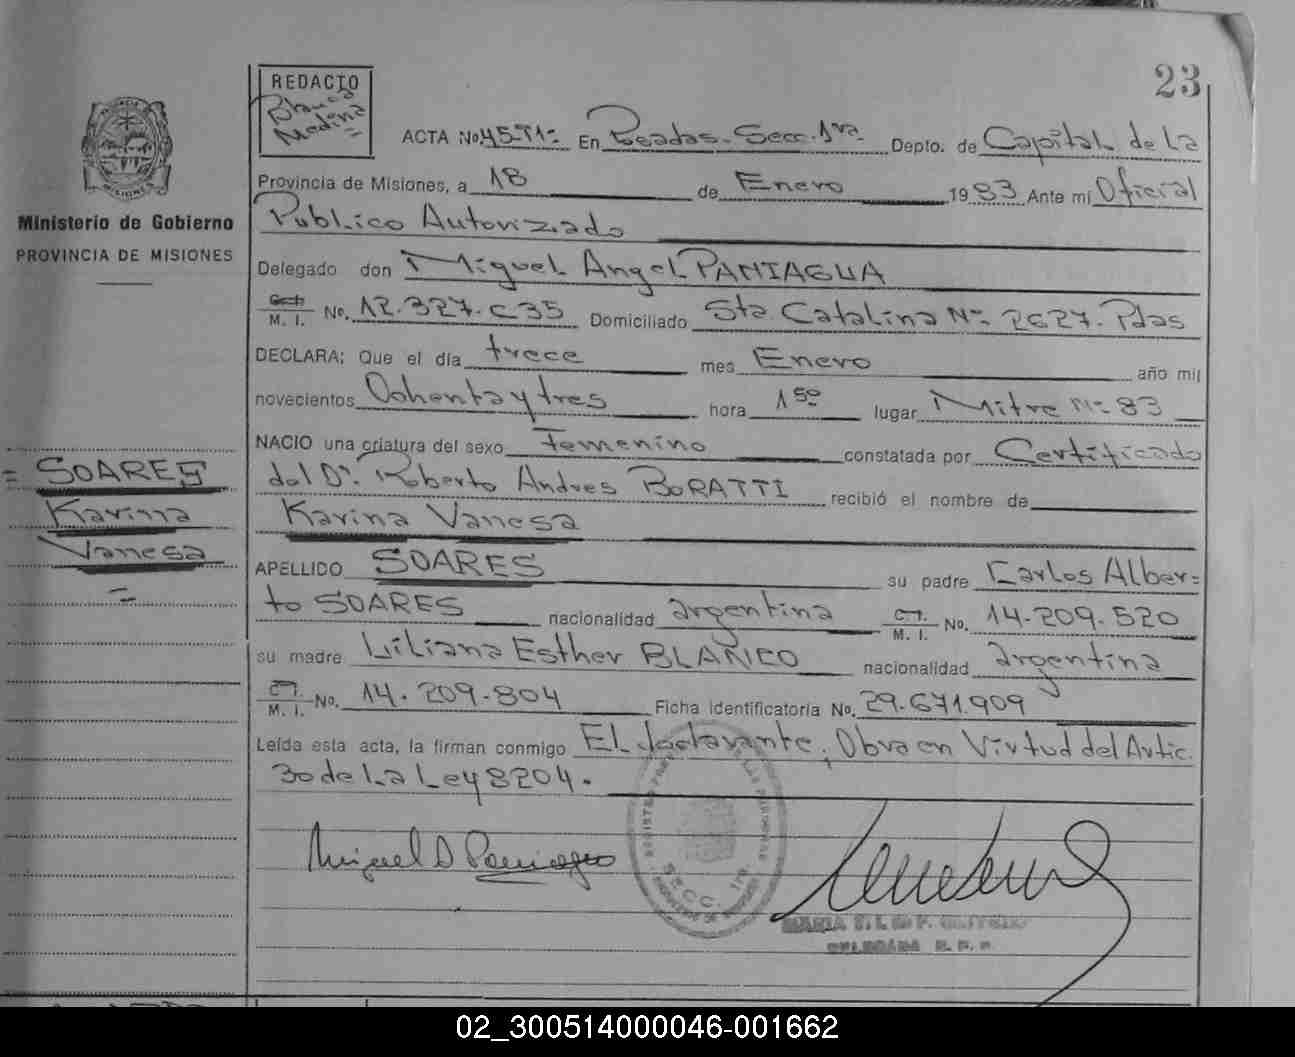 23
REDACTO
Blanca
Medina
=
ACTA No. 45-T1= En Posadas-Secc. 1ra. Depto. de Capital de La
Provincia de Misiones, a 18 de Enero 1983 Ante mi Oficial
Publico Autorizado
Delegado don Miguel Angel PANIAGUA
M. I. No. 12.327.035 Domiciliado Sta Catalina Nº 2627. Pdas
DECLARA; Que el día trece mes Enero año mil
novecientos Ochenta y tres hora 1 50 lugar Mitre Nº 83
NACIO una criatura del sexo Femenino constatada por Certificado
del Dr. Roberto Andres BORATTI recibió el nombre de
Karina Vanesa
APELLIDO SOARES su padre Carlos Alber=
to SOARES nacionalidad argentina C.I. M. I. No. 14.209.520
su madre Liliana Esther BLANCO nacionalidad argentina
C.I. M. I. No. 14.209.804 Ficha identificatoria No. 29.671.909
Leída esta acta, la firman conmigo El declarante, Obra en Virtud del Artic.
30 de La Ley 8204.
Miguel A Paniagua
SECC. 1ra.
MARIA
DELEGADA R. P. P.
MISIONES
Ministerio de Gobierno
PROVINCIA DE MISIONES
= SOARES
Karina
Vanesa
=
02_300514000046-001662